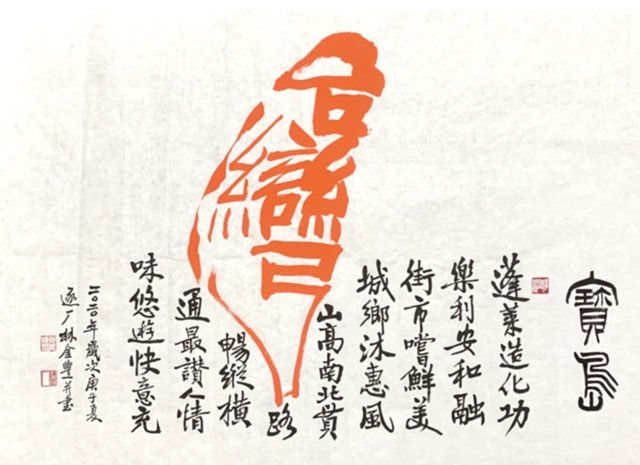 寶島
蓬萊造化功
樂利安和融
街市嚐鮮美
城鄉沐惠風
山高南北貫
路
暢縱橫
通最讚人情
味悠遊快意充
二〇二〇年歲次庚子夏
逐广林金豐并書
台灣